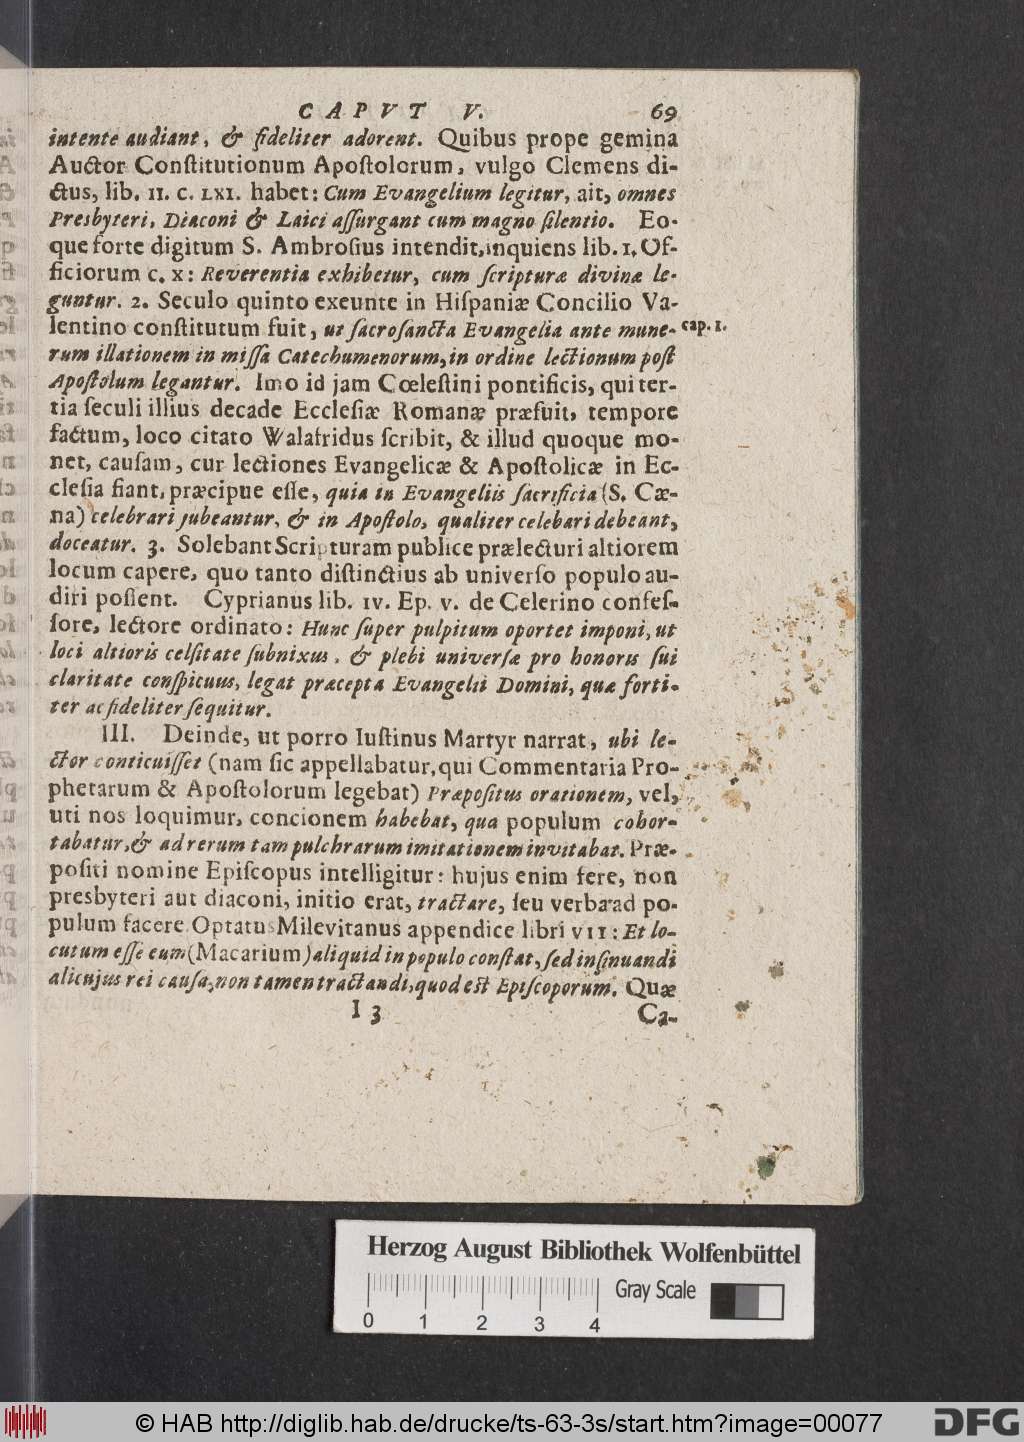 CAPVT V. 69
intente audiant, & fideliter adorent. Quibus prope gemina
Auctor Conſtitutionum Apoſtolorum, vulgo Clemens di-
ctus, lib. II. C. LXI. habet: Cum Evangelium legitur, ait, omnes
Presbyteri, Diaconi & Laici aſſurgant cum magno ſilentio. Eo-
que forte digitum S. Ambroſius intendit, inquiens lib. I. Of-
ficiorum c. x: Reverentia exhibetur, cum ſcripturæ divinæ le-
guntur. 2. Seculo quinto exeunte in Hiſpaniæ Concilio Va-
lentino conſtitutum fuit, ut ſacroſancta Evangelia ante mune- cap. I.
rum illationem in miſſa Catechumenorum, in ordine lectionum poſt
Apoſtolum legantur. Imo id jam Cœleſtini pontificis, qui ter-
tia ſeculi illius decade Eccleſiæ Romanæ præfuit, tempore
factum, loco citato Walafridus ſcribit, & illud quoque mo-
net, cauſam, cur lectiones Evangelicæ & Apoſtolicæ in Ec-
cleſia fiant, præcipue eſſe, quia in Evangeliis ſacrificia (S. Cæ-
na) celebrari jubeantur, & in Apoſtolo, qualiter celebari debeant,
doceatur. 3. Solebant Scripturam publice prælecturi altiorem
locum capere, quo tanto diſtinctius ab univerſo populo au-
diri poſſent. Cyprianus lib. IV. Ep. V. de Celerino confeſ-
ſore, lectore ordinato: Hunc ſuper pulpitum oportet imponi, ut
loci altioris celſitate ſubnixus, & plebi univerſæ pro honoris ſui
claritate conſpicuus, legat præcepta Evangelii Domini, quæ forti-
ter ac fideliter ſequitur.
III. Deinde, ut porro Iuſtinus Martyr narrat, ubi le-
ctor conticuiſſet (nam ſic appellabatur, qui Commentaria Pro-
phetarum & Apoſtolorum legebat) Præpoſitus orationem, vel,
uti nos loquimur, concionem habebat, qua populum cohor-
tabatur, & ad rerum tam pulchrarum imitationem invitabat. Præ-
poſiti nomine Epiſcopus intelligitur: hujus enim fere, non
presbyteri aut diaconi, initio erat, tractare, ſeu verba ad po-
pulum facere. Optatus Milevitanus appendice libri VII: Et lo-
cutum eſſe eum (Macarium) aliquid in populo conſtat, ſed inſinuandi
alicujus rei cauſa, non tamen tractandi, quod eſt Epiſcoporum. Quæ
I 3 Ca-
Herzog August Bibliothek Wolfenbüttel
Gray Scale
0 1 2 3 4
© HAB http://diglib.hab.de/drucke/ts-63-3s/start.htm?image=00077
DFG